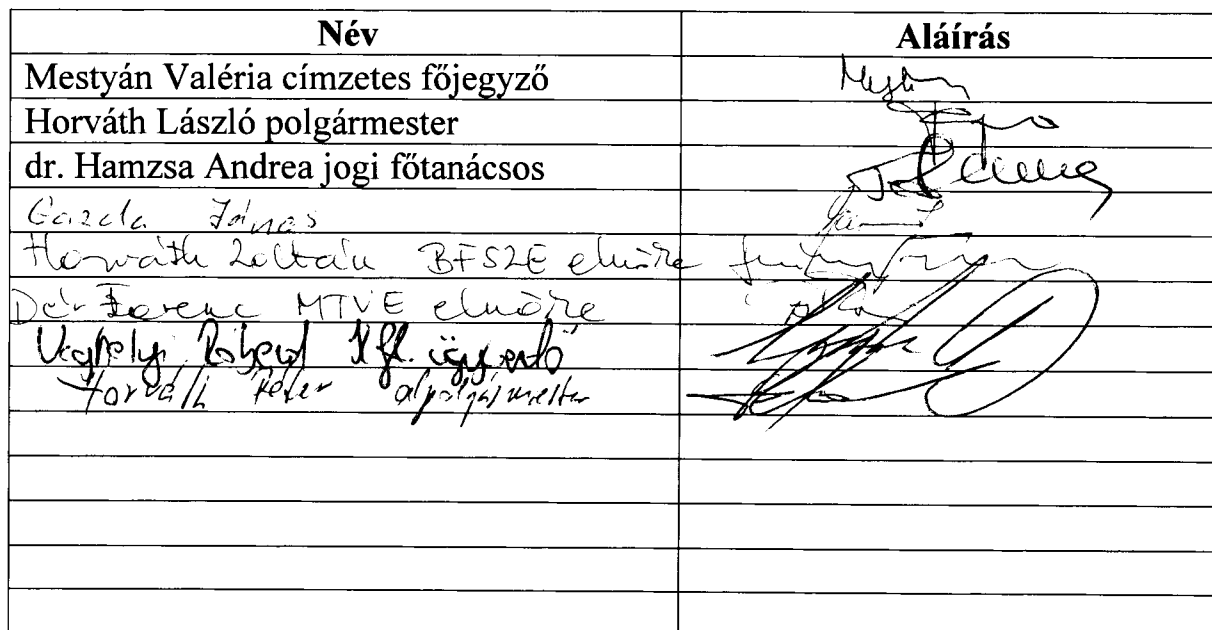 Név Aláírás
Mestyán Valéria címzetes főjegyző
Horváth László polgármester
dr. Hamzsa Andrea jogi főtanácsos
Gazda János
Horváth Zoltán BFSZE elnöke
Dér Ferenc MTVE elnöke
Véghelyi Róbert Kft. ügyvezető
Horváth Péter alpolgármester